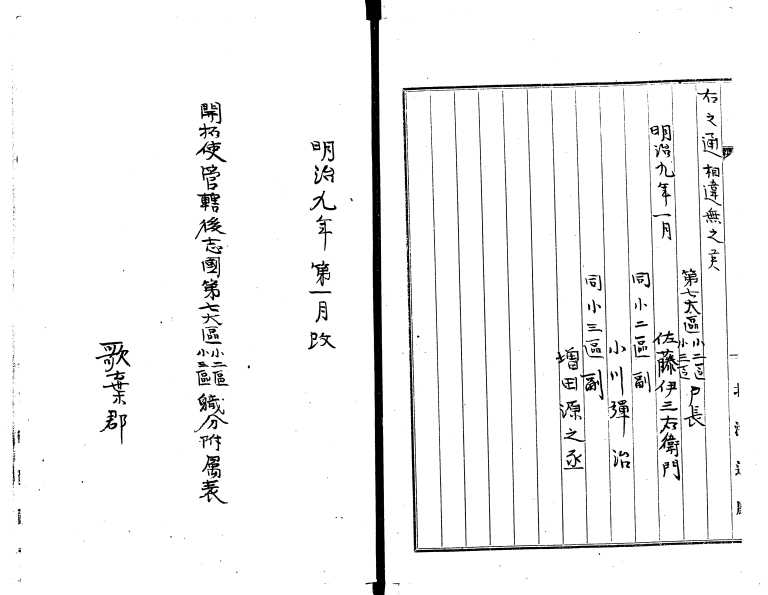 右之通相違無之候
明治九年一月
第七大區小二區小三區戸長
佐藤伊三右衛門
同小二區副
小川彈治
同小三區副
增田源之丞
明治九年第一月改
開拓使管轄後志國第七大區小二區小三區職分附屬表
歌棄郡